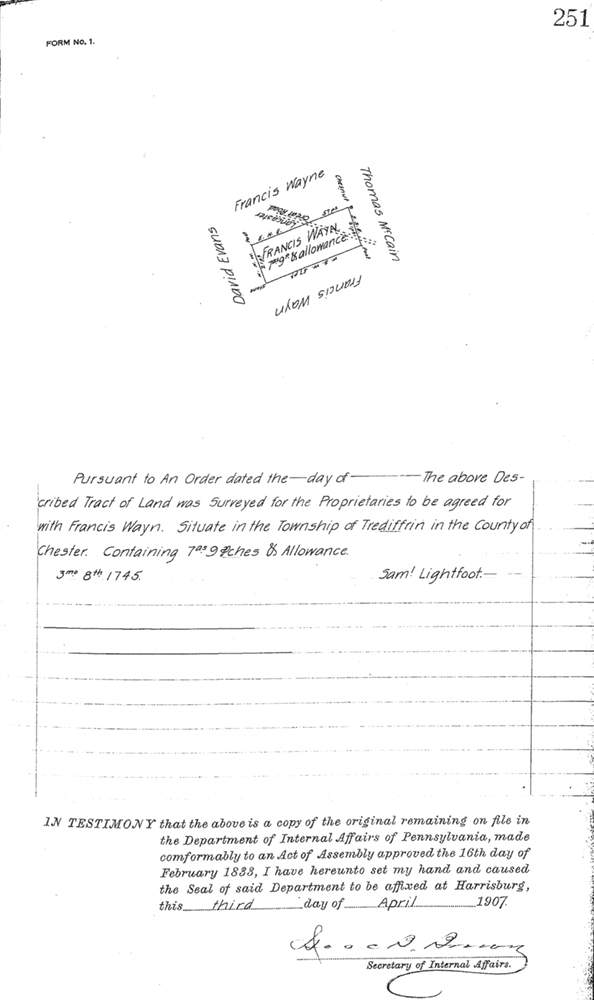 251
FORM NO. 1.
Francis Wayne
Thomas McCain
Chesnut
Lancaster
Great Road
David Evans
FRANCIS WAYN
7as 9ps & allowance
Stone
Post
Francis Wayn
Pursuant to An Order dated the — day of ——— The above Des-
cribed Tract of Land was Surveyed for the Proprietaries to be agreed for
with Francis Wayn. Situate in the Township of Trediffrin in the County of
Chester. Containing 7as 9 Pches & Allowance.
3mo 8th 1745. Saml Lightfoot.—
IN TESTIMONY that the above is a copy of the original remaining on file in
the Department of Internal Affairs of Pennsylvania, made
comformably to an Act of Assembly approved the 16th day of
February 1833, I have hereunto set my hand and caused
the Seal of said Department to be affixed at Harrisburg,
this third day of April 1907.
Secretary of Internal Affairs.